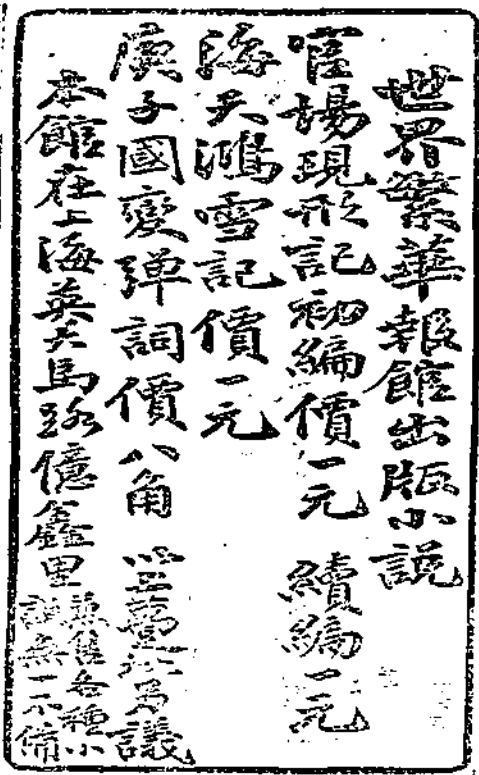 世界繁華報館出版小説
官塲現形記初編價一元　續編一元
海天鴻雪記價一元
庚子國變弹詞價八角　以上躉批另議
本館在上海英大馬路億鑫里
兼售各種小
説無一不備